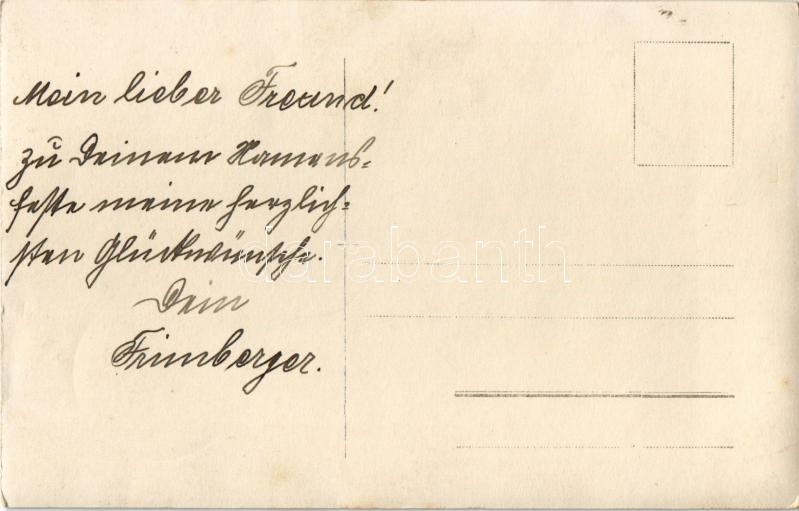 Mein lieber Freund!
zu Deinem Namens-
feste meine herzlich-
sten Glückwünsche.
Dein
Frimberger.
darabanth